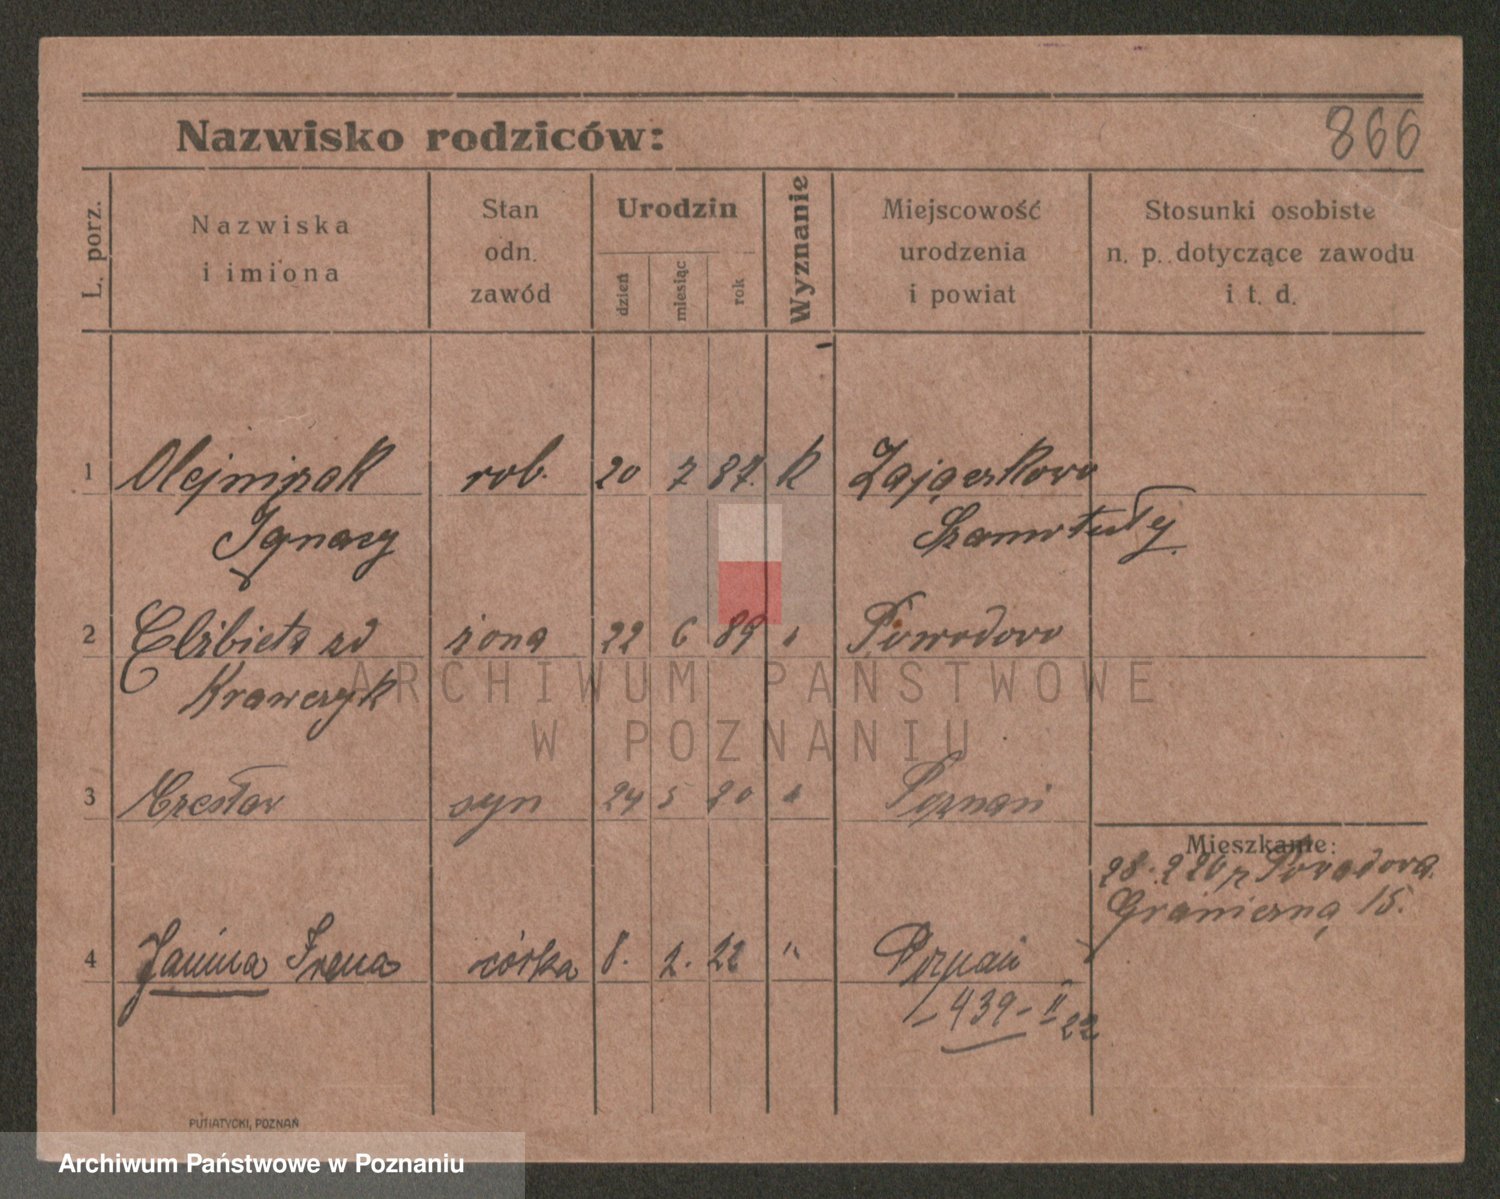 Nazwisko rodziców:
866
L. porz.
Nazwiska
i imiona
Stan
odn.
zawód
Urodzin
dzień
miesiąc
rok
Wyznanie
Miejscowość
urodzenia
i powiat
Stosunki osobiste
n. p. dotyczące zawodu
i t. d.
1 Olejniczak rob. 20 7 87. k
Ignacy
2 Elżbieta zd żona 22 6 89 "
Krawczyk
3 Czesław syn 24 5 20 " Poznań
Mieszkanie:
Graniczną 15.
4 Janina Irena córka 8. 2. 22 " Poznań
439-II
22
PUTIATYCKI, POZNAŃ
ARCHIWUM PAŃSTWOWE
W POZNANIU
Archiwum Państwowe w Poznaniu